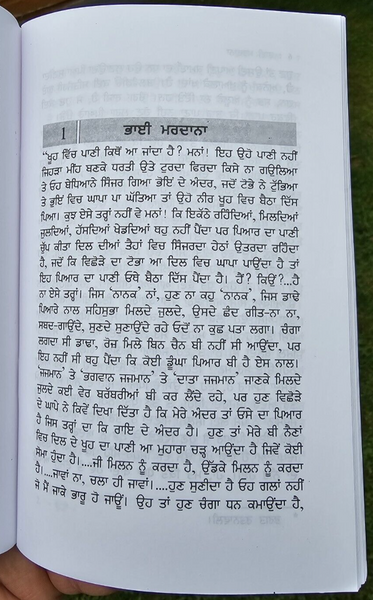 1 ਭਾਈ ਮਰਦਾਨਾ
“ਖੂਹ ਵਿੱਚ ਪਾਣੀ ਕਿਥੋਂ ਆ ਜਾਂਦਾ ਹੈ? ਮਨਾਂ! ਇਹ ਉਹੋ ਪਾਣੀ ਨਹੀਂ
ਜਿਹੜਾ ਮੀਂਹ ਬਣਕੇ ਧਰਤੀ ਉਤੇ ਤੁਰਦਾ ਫਿਰਦਾ ਕਿਸੇ ਨਾ ਗਉਲਿਆ
ਤੇ ਓਹ ਬੇਧਿਆਨੇ ਸਿੰਜਰ ਗਿਆ ਭੋਇਂ ਦੇ ਅੰਦਰ, ਜਦੋਂ ਟੋਭੇ ਨੇ ਟੁੱਭਿਆ
ਤੇ ਭੁਇ ਵਿਚ ਘਾਪਾ ਪਾ ਘੱਤਿਆ ਤਾਂ ਉਹੋ ਨੀਰ ਖੂਹ ਵਿਚ ਬੈਠਾ ਦਿੱਸ
ਪਿਆ। ਕੁਝ ਏਸੇ ਤਰ੍ਹਾਂ ਨਹੀਂ ਵੇ ਮਨਾਂ! ਕਿ ਇਕੱਠੇ ਰਹਿੰਦਿਆਂ, ਮਿਲਦਿਆਂ
ਜੁਲਦਿਆਂ, ਹੱਸਦਿਆਂ ਖੇਡਦਿਆਂ ਥਹੁ ਨਹੀਂ ਪੈਂਦਾ ਪਰ ਪਿਆਰ ਦਾ ਪਾਣੀ
ਚੁੱਪ ਕੀਤਾ ਦਿਲ ਦੀਆਂ ਤੈਹਾਂ ਵਿਚ ਸਿੰਜਰਦਾ ਹੇਠਾਂ ਉਤਰਦਾ ਰਹਿੰਦਾ
ਹੈ, ਜਦੋਂ ਕਿ ਵਿਛੋੜੇ ਦਾ ਟੋਭਾ ਆ ਦਿਲ ਵਿਚ ਘਾਪਾ ਪਾਉਂਦਾ ਹੈ ਤਾਂ
ਇਹ ਪਿਆਰ ਦਾ ਪਾਣੀ ਓਥੇ ਬੈਠਾ ਦਿੱਸ ਪੈਂਦਾ ਹੈ। ਹੈਂ? ਕਿਉਂ?...ਹੈ
ਨਾ ਏਸੇ ਤਰ੍ਹਾਂ। ਜਿਸ ‘ਨਾਨਕ’ ਨਾਂ, ਹੁਣ ਨਾ ਕਹੁ ‘ਨਾਨਕ’, ਜਿਸ ਡਾਢੇ
ਪਿਆਰੇ ਨਾਲ ਸਹਿਸੁਭਾ ਮਿਲਦੇ ਜੁਲਦੇ, ਉਸਦੇ ਛੰਦ ਗੀਤ-ਨਾ ਨਾ,
ਸਬਦ-ਗਾਉਂਦੇ, ਸੁਣਦੇ ਸੁਣਾਉਂਦੇ ਰਹੇ ਓਦੋਂ ਨਾ ਕੁਛ ਪਤਾ ਲਗਾ। ਚੰਗਾ
ਲਗਦਾ ਸੀ ਡਾਢਾ, ਰੋਜ਼ ਮਿਲੇ ਬਿਨ ਚੈਨ ਬੀ ਨਹੀਂ ਸੀ ਆਉਂਦਾ, ਪਰ
ਇਹ ਨਹੀਂ ਸੀ ਥਹੁ ਪੈਂਦਾ ਕਿ ਕੋਈ ਡੂੰਘਾ ਪਿਆਰ ਬੀ ਹੈ ਏਸ ਨਾਲ।
‘ਜਜਮਾਨ’ ਤੇ ‘ਭਗਵਾਨ ਜਜਮਾਨ’ ਤੇ ‘ਦਾਤਾ ਜਜਮਾਨ’ ਜਾਣਕੇ ਮਿਲਦੇ
ਜੁਲਦੇ ਕਈ ਵੇਰ ਬਰੱਬਰੀਆਂ ਬੀ ਕਰ ਲੈਂਦੇ ਰਹੇ, ਪਰ ਹੁਣ ਵਿਛੋੜੇ
ਦੇ ਘਾਪੇ ਨੇ ਕਿਵੇਂ ਦਿਖਾ ਦਿੱਤਾ ਹੈ ਕਿ ਮੇਰੇ ਅੰਦਰ ਤਾਂ ਓਸੇ ਦਾ ਪਿਆਰ
ਹੈ ਜਿਸ ਤਰ੍ਹਾਂ ਦਾ ਕਿ ਰਾਇ ਦੇ ਅੰਦਰ ਹੈ। ਹੁਣ ਤਾਂ ਮੇਰੇ ਬੀ ਨੈਣਾਂ
ਵਿਚ ਦਿਲ ਦੇ ਖੂਹ ਦਾ ਪਾਣੀ ਆ ਮੁਹਾਰਾ ਚੜ੍ਹ ਆਉਂਦਾ ਹੈ ਜਿਵੇਂ ਕੋਈ
ਸੋਮਾ ਹੁੰਦਾ ਹੈ।....ਜੀ ਮਿਲਨ ਨੂੰ ਕਰਦਾ ਹੈ, ਉੱਡਕੇ ਮਿਲਨ ਨੂੰ ਕਰਦਾ
ਹੈ।....ਜਾਵਾਂ ਨਾ, ਚਲਾ ਹੀ ਜਾਵਾਂ।....ਹੁਣ ਸੁਣੀਦਾ ਹੈ ਓਹ ਗਲਾਂ ਨਹੀਂ
ਜੋ ਮੈਂ ਜਾਕੇ ਭਾਰੂ ਹੋ ਜਾਊਂ। ਉਹ ਤਾਂ ਹੁਣ ਚੰਗਾ ਧਨ ਕਮਾਉਂਦਾ ਹੈ,